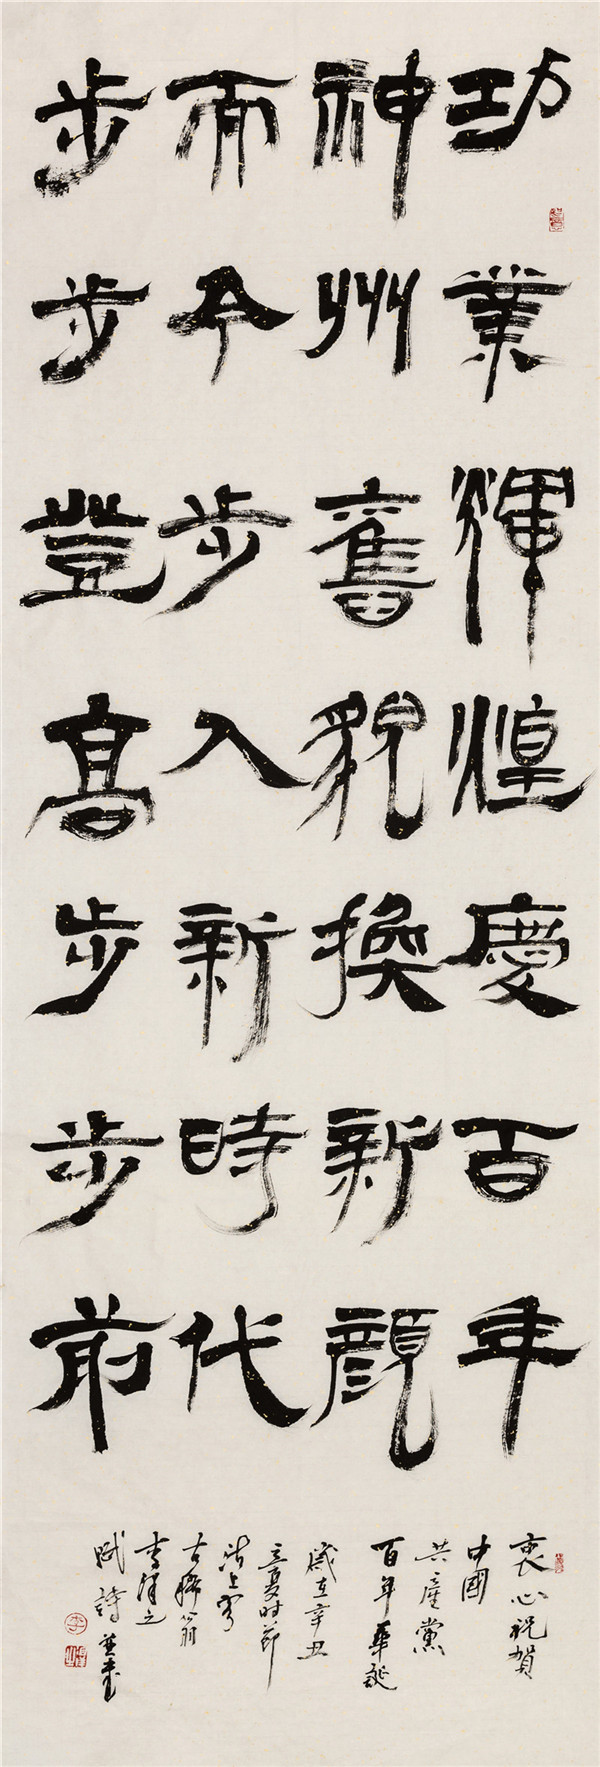 功業輝煌慶百年
神州舊貌換新顏
而今步入新時代
步步登高步步前
衷心祝賀
中國
共產黨
百年華誕
歲在辛丑
立夏时节
上
古 翁
李澤之
賦詩並書